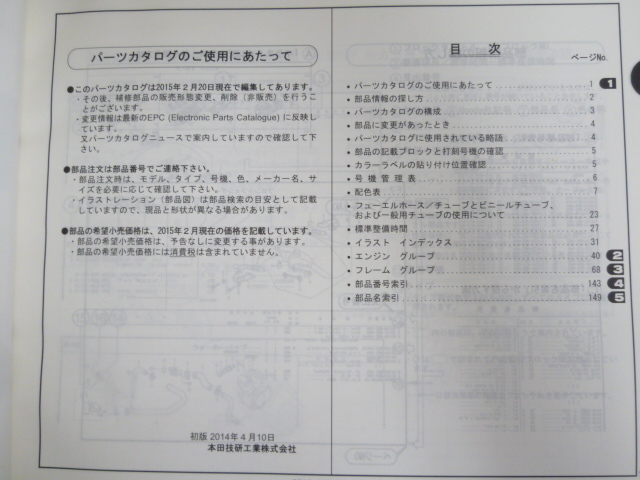 パーツカタログのご使用にあたって
●このパーツカタログは2015年2月20日現在で編集してあります。
・その後、補修部品の販売形態変更、削除（非販売）を行うこ
とがございます。
・変更情報は最新のEPC (Electronic Parts Catalogue) に反映し
ています。
又パーツカタログニュースで案内していますので確認して下
さい。
●部品注文は部品番号でご連絡下さい。
・部品注文時は、モデル、タイプ、号機、色、メーカー名、サ
イズを必要に応じて確認して下さい。
・イラストレーション（部品図）は部品検索の目安として記載
していますので、現品と形状が異なる場合があります。
●部品の希望小売価格は、2015年2月現在の価格を記載しています。
・部品の希望小売価格は、予告なしに変更する事があります。
・部品の希望小売価格には消費税は含まれていません。
初版 2014年4月10日
本田技研工業株式会社
目 次
ページNo.
• パーツカタログのご使用にあたって 1 1
• 部品情報の探し方 2
• パーツカタログの構成 3
• 部品に変更があったとき 4
• パーツカタログに使用されている略語 4
• 部品の記載ブロックと打刻号機の確認 5
• カラーラベルの貼り付け位置確認 5
• 号機管理表 6
• 配色表 7
• フューエルホース／チューブとビニールチューブ、
および一般用チューブの使用について 23
• 標準整備時間 27
• イラスト インデックス 31
• エンジン グループ 40 2
• フレーム グループ 68 3
• 部品番号索引 143 4
• 部品名索引 149 5